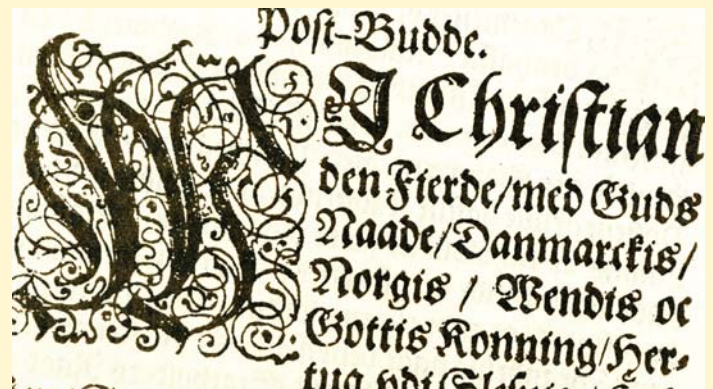 Post-Budde.
WJ Christian
den Fierde/med Guds
Naade/Danmarckis/
Norgis / Wendis oc
Gottis Konning/Her-
tug udi